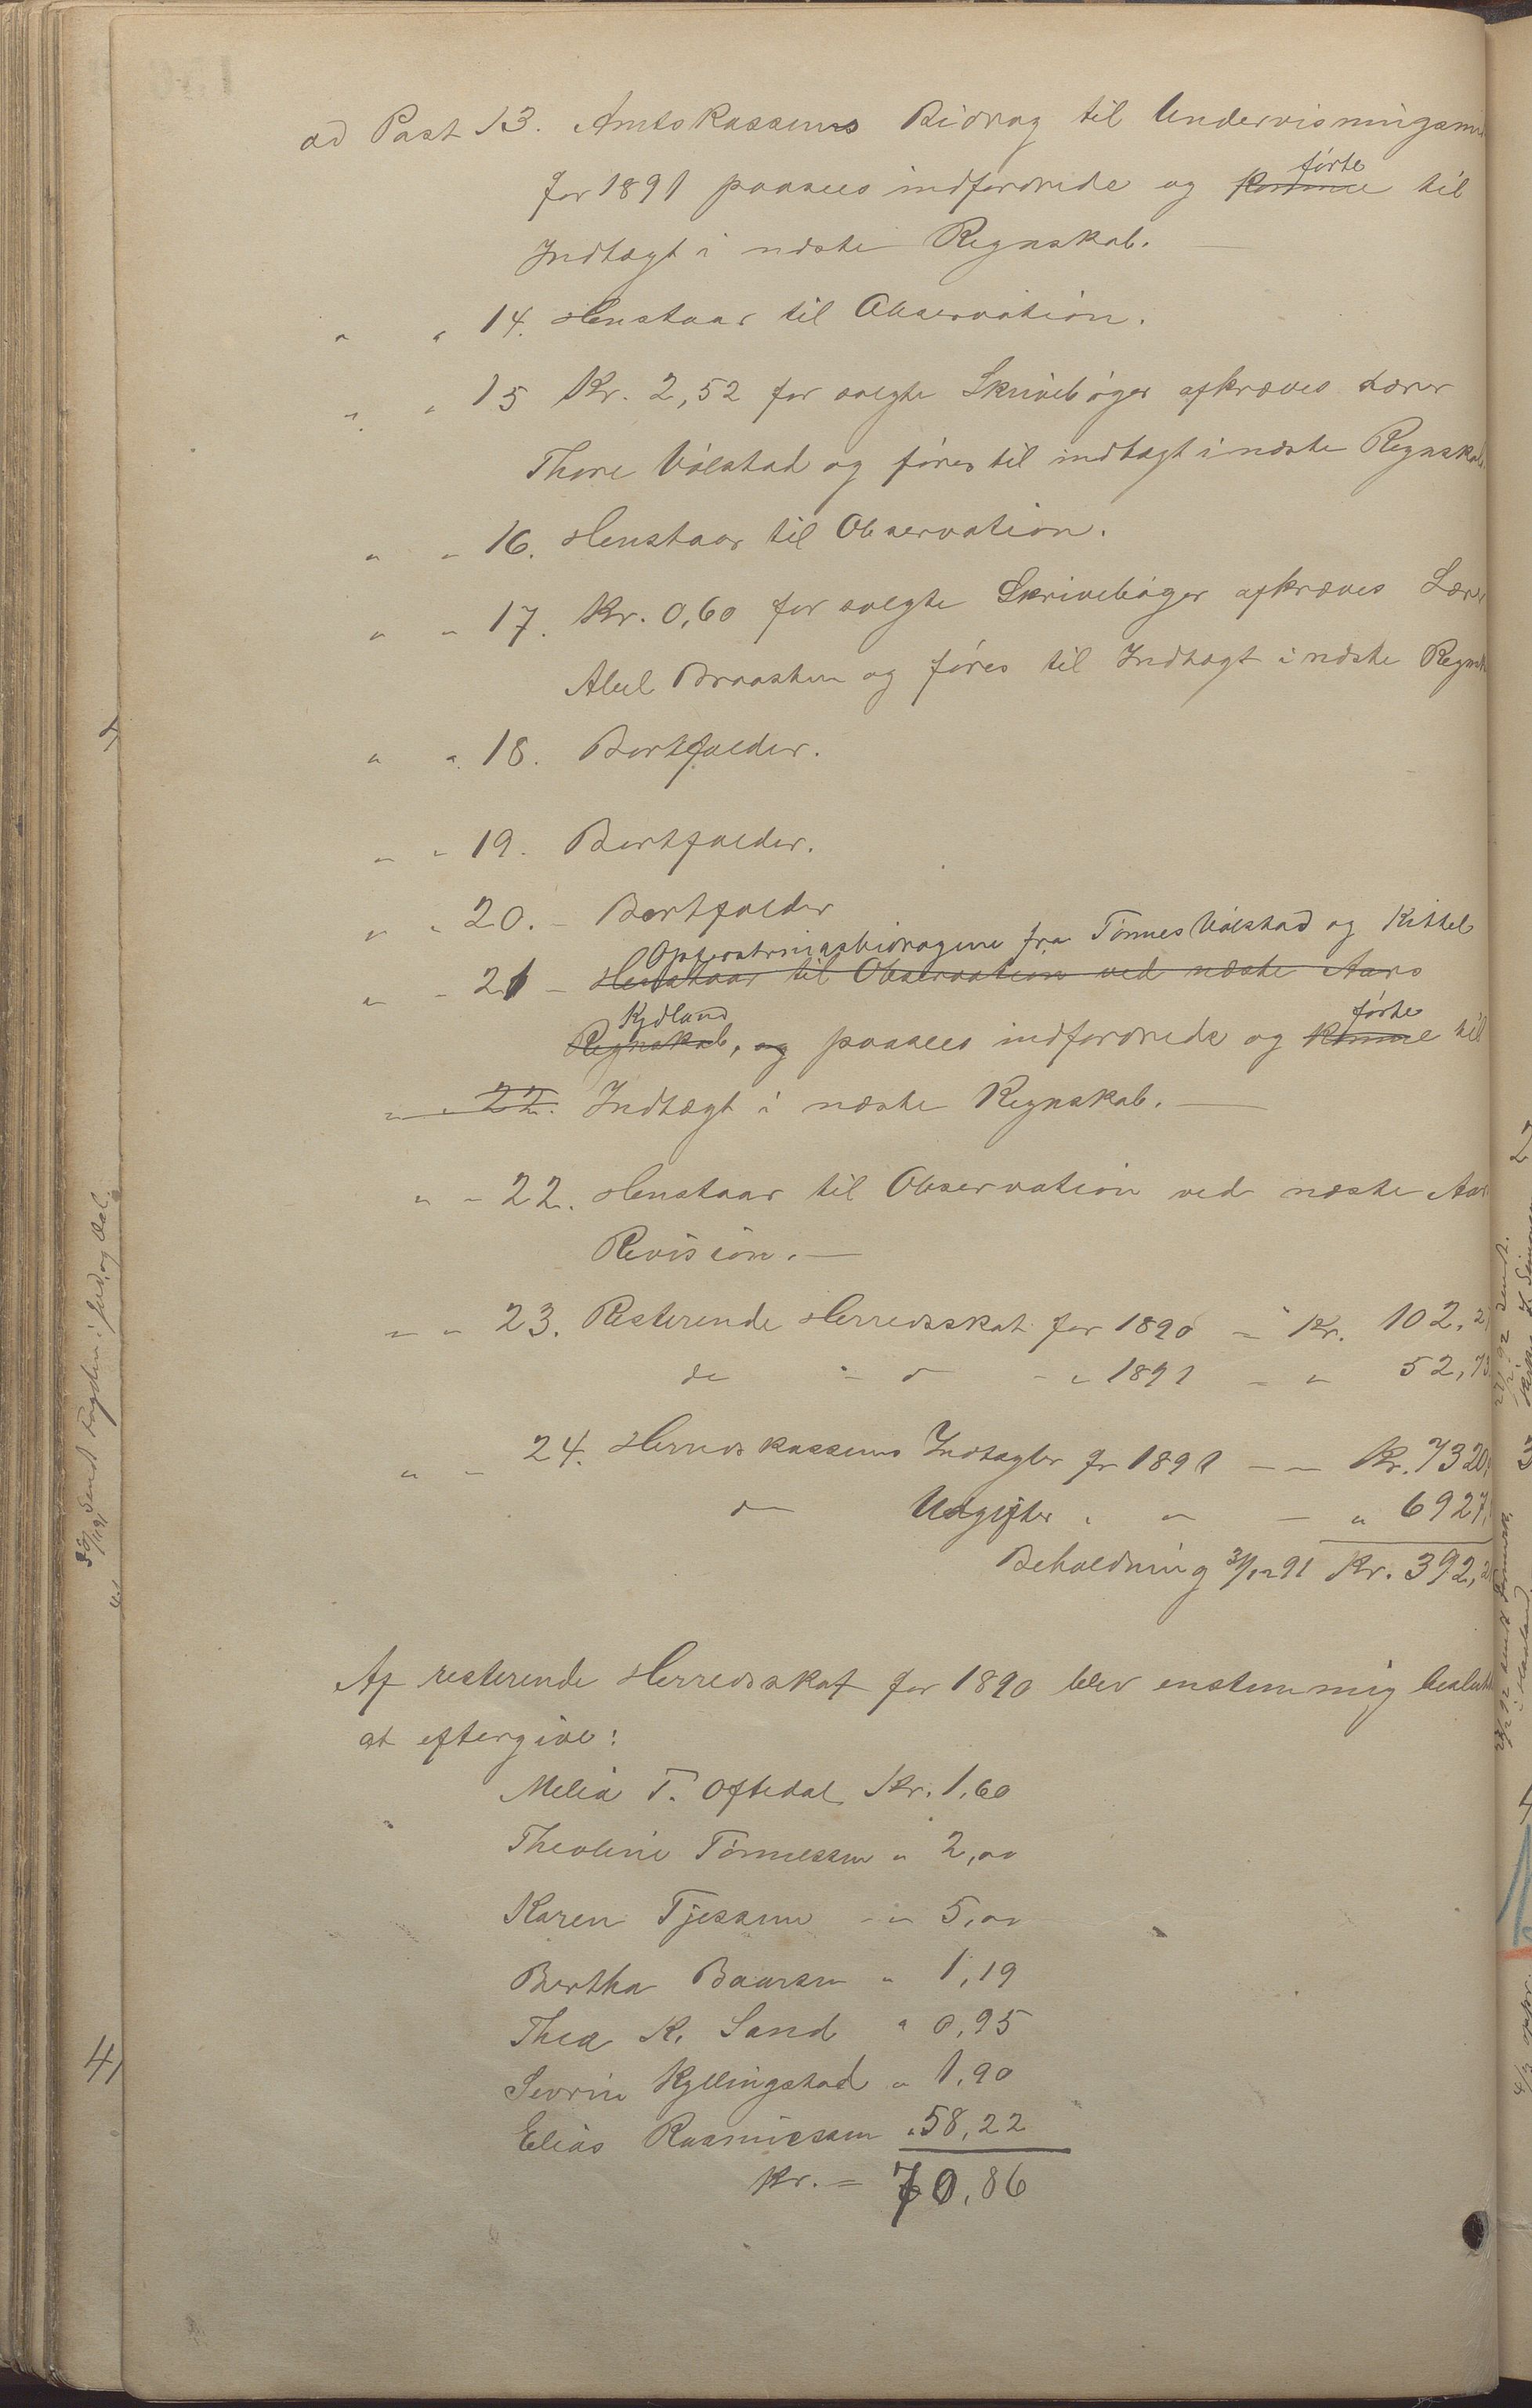 ad Post 13. Amtskassens Bidrag til Undervisnings
for 1891 paasees indfordrede og komme førte til
Indtægt i næste Regnskab. —
" " 14. Henstaar til Observation.
" " 15 Kr. 2,52 for solgte Skrivebøger afkræves Lærer
Thore Vølstad og føres til indtægt i næste Regnskab
" " 16. Henstaar til Observation.
" " 17. Kr. 0,60 for solgte Skrivebøger afkræves Lærer
Abel Braasten og føres til Indtægt i næste Regnsk
" " 18. Bortfalder.
" " 19. Bortfalder.
" " 20. – Bortfalder
Opfostringsbidragene fra Tønnes Vølstad og Kittel
" " 21 – Henstaar til Observation ved næste Aars
Kydland førte
Regnskab, og paasees indfordrede og komme til
" " 22. Indtægt i næste Regnskab. —
" " 22. Henstaar til Observation ved næste Aars
Revision. —
" " 23. Resterende Herredsskat for 1890 – Kr. 102,2
do " d " 1891 – " 52,73
" " 24. Herredskassens Indtægter for 1891 — Kr. 7320,
d Udgifter " " — " 6927,
Beholdning 31/12 91 Kr. 392,2
Af resterende Herredsskat for 1890 blev enstemmig beslut
at eftergive:
Melia T. Oftedal Kr. 1,60
Theoline Tønnessen " 2,00
Karen Tjessem " 5,00
Bertha Baursen " 1,19
Thea K. Sand " 0,95
Sevrin Kyllingstad " 1,90
Elias Rasmussen " 58,22
Kr. = 70,86